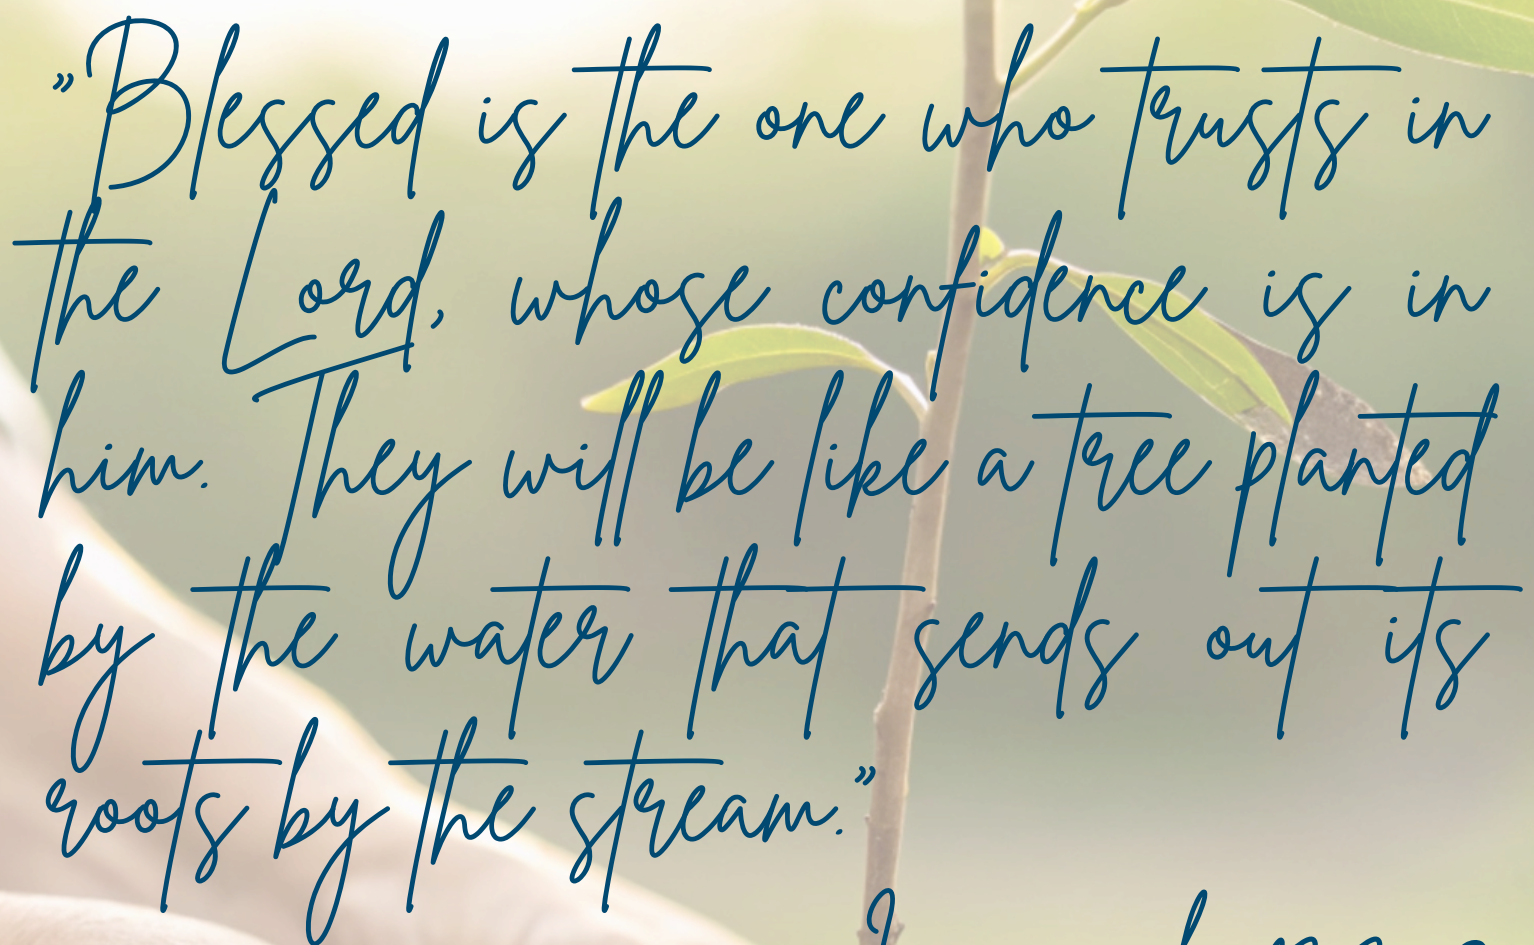 ”Blessed is the one who trusts in
the Lord, whose confidence is in
him. They will be like a tree planted
by the water that sends out its
roots by the stream.”